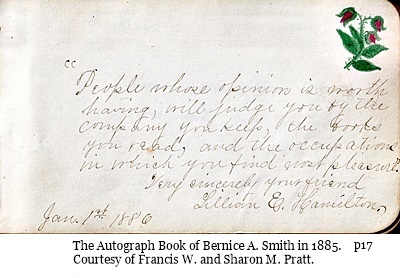 "People whose opinion is worth
having, will judge you by the
company you keep, the books
you read, and the occupations
in which you find most pleasure."
Very sincerely your friend
Lillian E. Hamilton.
Jan. 1st 1886
The Autograph Book of Bernice A. Smith in 1885. p17
Courtesy of Francis W. and Sharon M. Pratt.